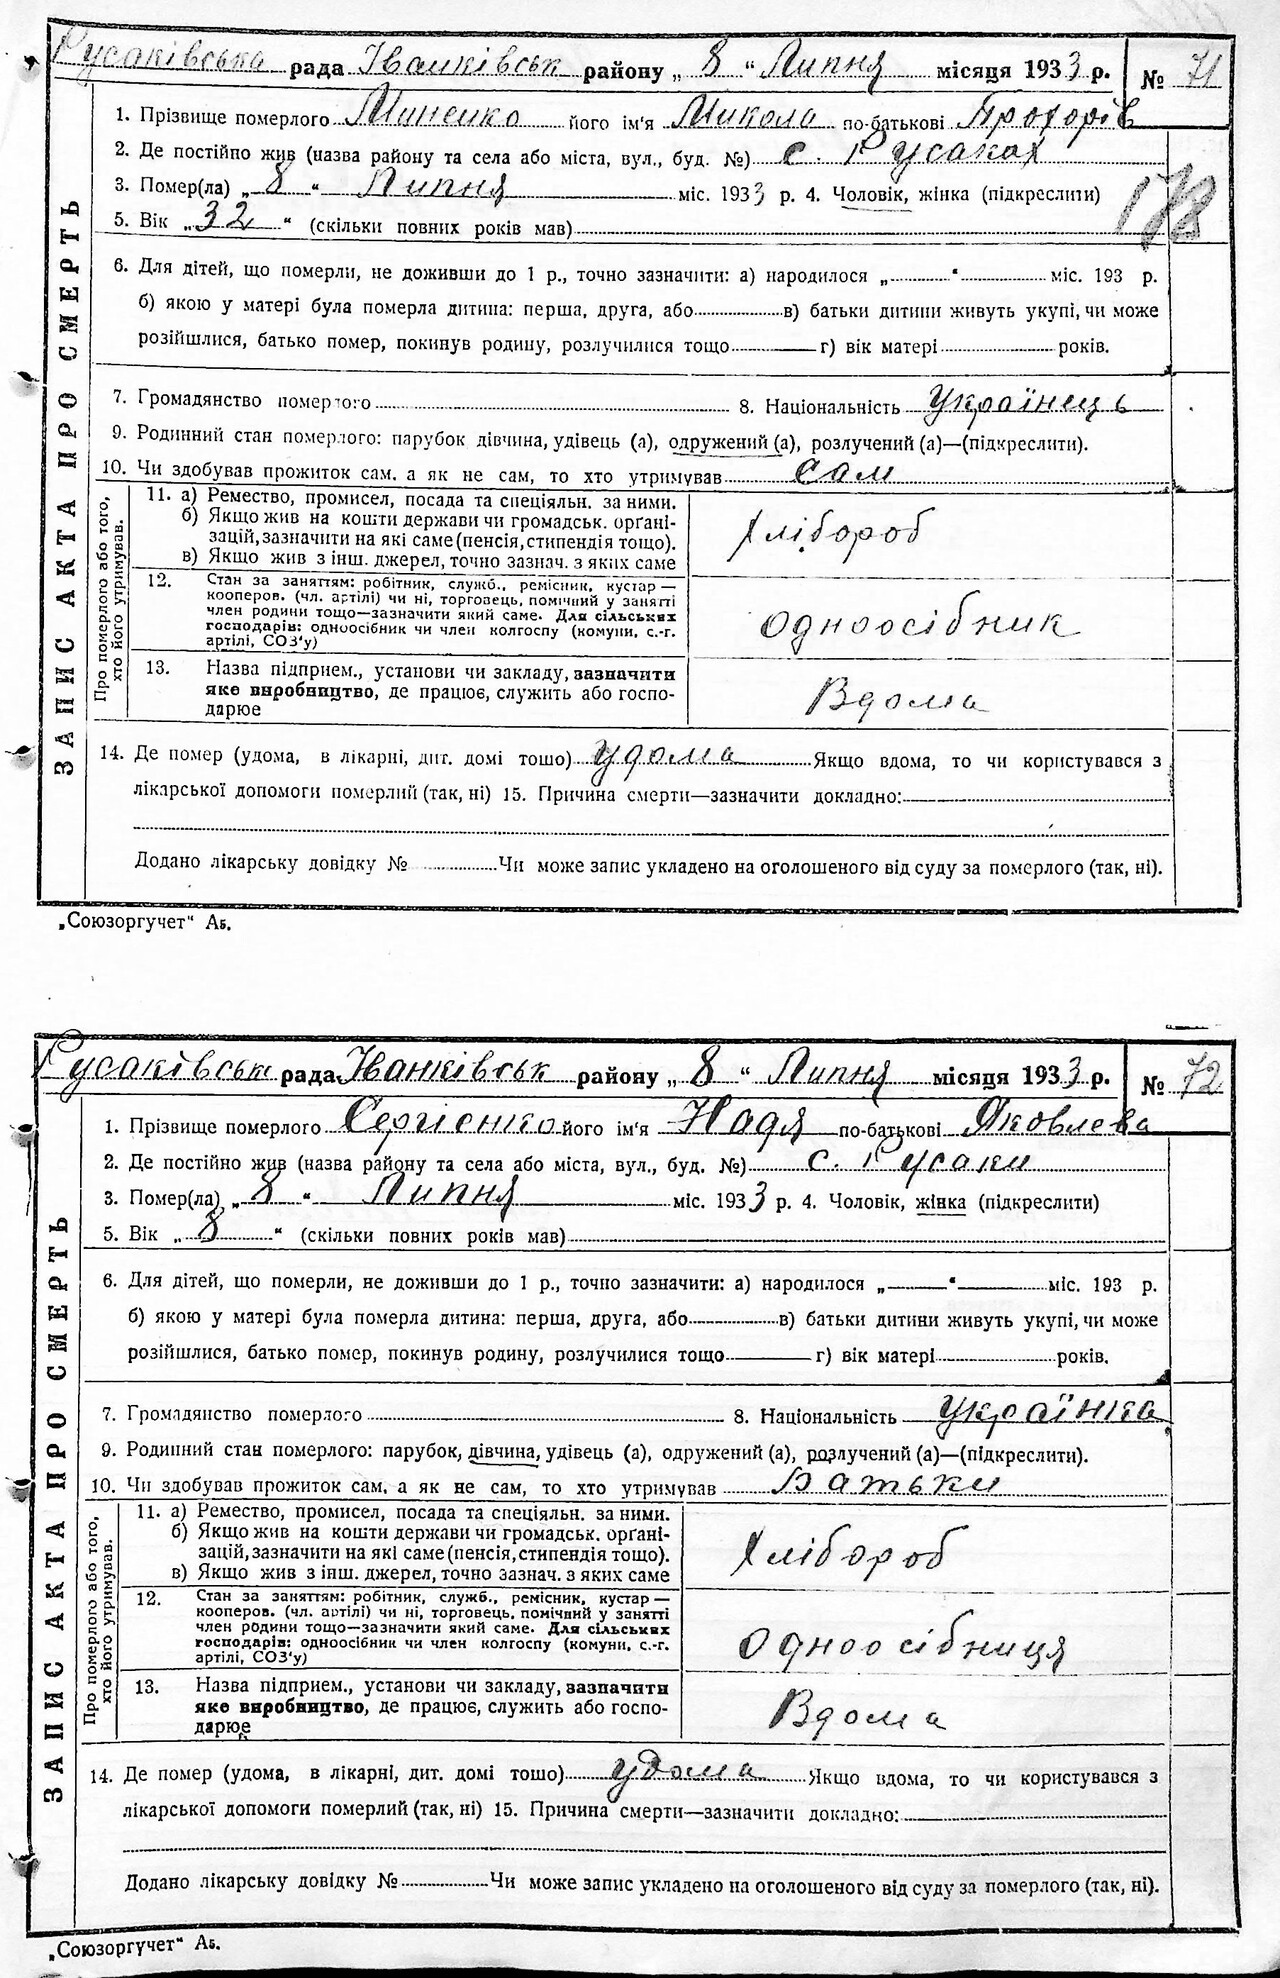 Русаківська рада Іванківськ району „ 8 “ Липня місяця 1933 р. № 71
1. Прізвище померлого Миненко його ім'я Микола по-батькові Прохорів
2. Де постійно жив (назва району та села або міста, вул., буд. №) с. Русаках
3. Помер(ла) „ 8 “ Липня міс. 1933 р. 4. Чоловік, жінка (підкреслити)
178
5. Вік „ 32 “ (скільки повних років мав)
6. Для дітей, що померли, не доживши до 1 р., точно зазначити: а) народилося „ “ міс. 193 р.
б) якою у матері була померла дитина: перша, друга, або в) батьки дитини живуть укупі, чи може
розійшлися, батько помер, покинув родину, розлучилися тощо г) вік матері років.
7. Громадянство померлого 8. Національність Українець
9. Родинний стан померлого: парубок дівчина, удівець (а), одружений (а), розлучений (а)—(підкреслити).
10. Чи здобував прожиток сам, а як не сам, то хто утримував сам
ЗАПИС АКТА ПРО СМЕРТЬ
Про померлого або того, хто його утримував.
11. а) Ремество, промисел, посада та спеціяльн. за ними.
б) Якщо жив на кошти держави чи громадськ. орґані-
зацій, зазначити на які саме (пенсія, стипендія тощо).
в) Якщо жив з інш. джерел, точно зазнач. з яких саме
Хлібороб
12. Стан за заняттям: робітник, служб., ремісник, кустар —
кооперов. (чл. артілі) чи ні, торговець, помічний у занятті
член родини тощо—зазначити який саме. Для сільських
господарів: одноосібник чи член колгоспу (комуни, с.-г.
артілі, СОЗ'у)
одноосібник
13. Назва підприєм., установи чи закладу, зазначити
яке виробництво, де працює, служить або госпо-
дарює
Вдома
14. Де помер (удома, в лікарні, дит. домі тощо) удома Якщо вдома, то чи користувався з
лікарської допомоги померлий (так, ні) 15. Причина смерти—зазначити докладно:
Додано лікарську довідку № Чи може запис укладено на оголошеного від суду за померлого (так, ні).
„Союзоргучет“ Аб.
Русаківськ рада Іванківськ району „ 8 “ Липня місяця 1933 р. № 72
1. Прізвище померлого Сергієнко його ім'я Надя по-батькові Яковлева
2. Де постійно жив (назва району та села або міста, вул., буд. №) с. Русаки
3. Помер(ла) „ 8 “ Липня міс. 1933 р. 4. Чоловік, жінка (підкреслити)
5. Вік „ 8 “ (скільки повних років мав)
6. Для дітей, що померли, не доживши до 1 р., точно зазначити: а) народилося „ “ міс. 193 р.
б) якою у матері була померла дитина: перша, друга, або в) батьки дитини живуть укупі, чи може
розійшлися, батько помер, покинув родину, розлучилися тощо г) вік матері років.
7. Громадянство померлого 8. Національність Українка
9. Родинний стан померлого: парубок, дівчина, удівець (а), одружений (а), розлучений (а)—(підкреслити).
10. Чи здобував прожиток сам, а як не сам, то хто утримував Батьки
ЗАПИС АКТА ПРО СМЕРТЬ
Про померлого або того, хто його утримував.
11. а) Ремество, промисел, посада та спеціяльн. за ними.
б) Якщо жив на кошти держави чи громадськ. орґані-
зацій, зазначити на які саме (пенсія, стипендія тощо).
в) Якщо жив з інш. джерел, точно зазнач. з яких саме
Хлібороб
12. Стан за заняттям: робітник, служб., ремісник, кустар —
кооперов. (чл. артілі) чи ні, торговець, помічний у занятті
член родини тощо—зазначити який саме. Для сільських
господарів: одноосібник чи член колгоспу (комуни, с.-г.
артілі, СОЗ'у)
одноосібниця
13. Назва підприєм., установи чи закладу, зазначити
яке виробництво, де працює, служить або госпо-
дарює
Вдома
14. Де помер (удома, в лікарні, дит. домі тощо) удома Якщо вдома, то чи користувався з
лікарської допомоги померлий (так, ні) 15. Причина смерти—зазначити докладно:
Додано лікарську довідку № Чи може запис укладено на оголошеного від суду за померлого (так, ні).
„Союзоргучет“ Аб.